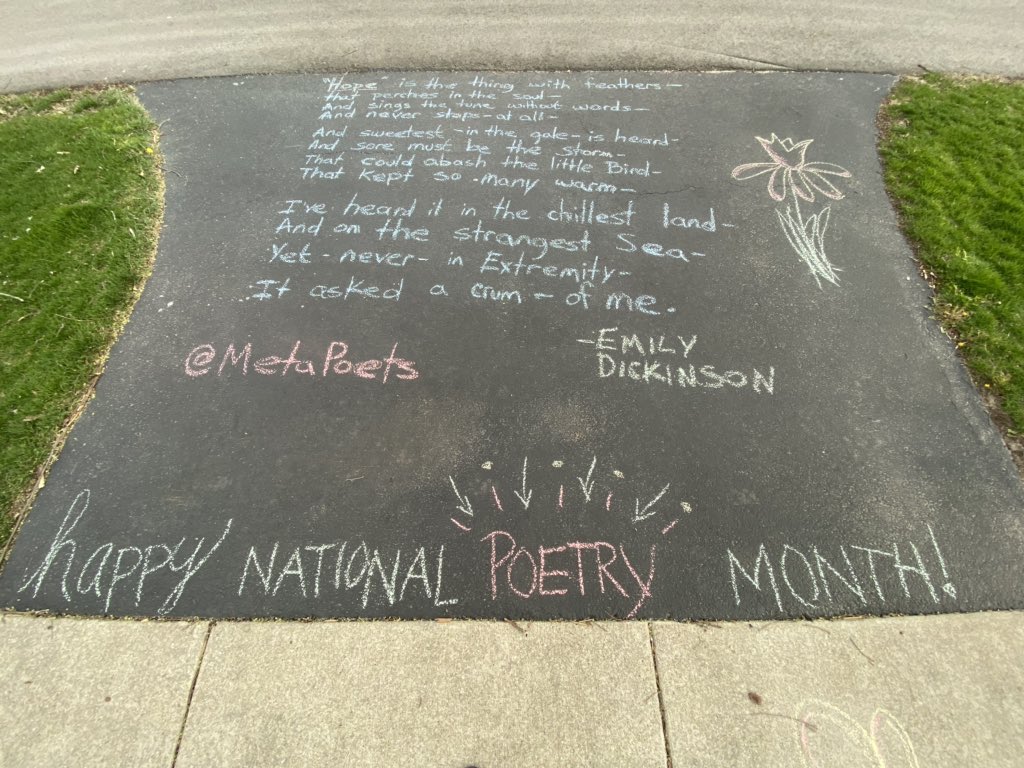 "Hope" is the thing with feathers-
that perches in the soul-
And sings the tune without words-
And never stops-at all-
And sweetest-in the gale-is heard-
And sore must be the storm-
That could abash the little Bird-
That kept so-many warm-
I've heard it in the chillest land-
And on the strangest Sea-
Yet-never-in Extremity-
It asked a crum-of me.
@MetaPoets
-EMILY
DICKINSON
happy NATIONAL POETRY MONTH!